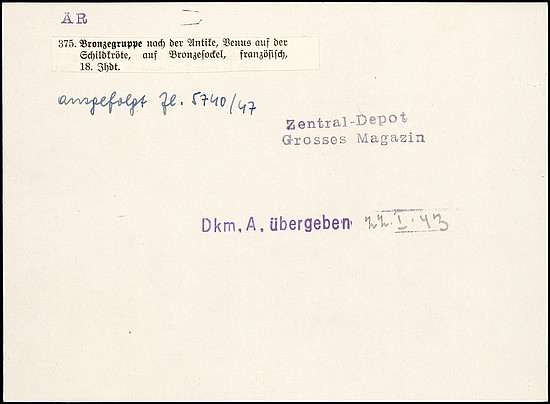 ÄR
375. Bronzegruppe nach der Antike, Venus auf der
Schildkröte, auf Bronzesockel, französisch,
18. Jhdt.
ausgefolgt Zl. 5740/47
Zentral-Depot
Grosses Magazin
Dkm. A. übergeben 22. I. 43